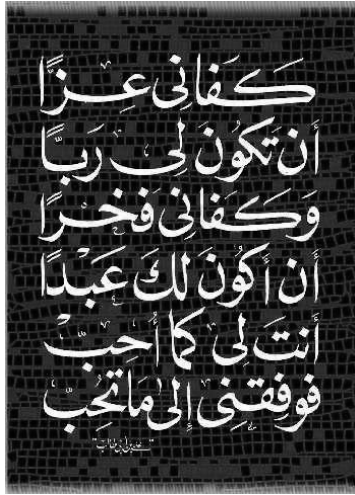 كَفَانِى عِزًّا
أَن تَكُونَ لِى رَبًّا
وَكَفَانِى فَخرًا
أَن أَكُونَ لَكَ عَبْدًا
أَنتَ لِى كَمَا أُحِبّ
فَوَفِقنِى إِلىٰ مَا تُحِبّ
"علي بن أبي طالب"